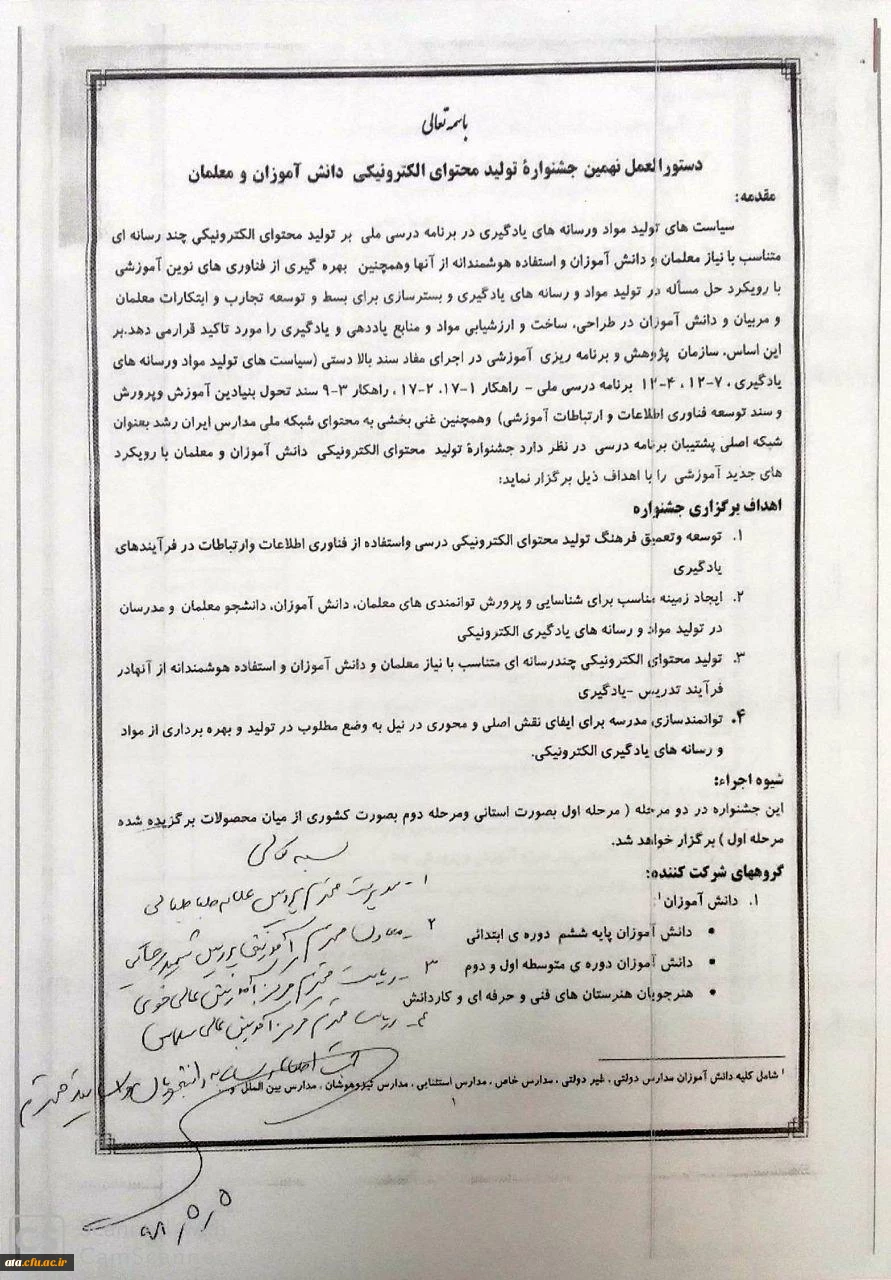 باسمه تعالی
دستورالعمل نهمین جشنوارۀ تولید محتوای الکترونیکی دانش آموزان و معلمان
مقدمه:
سیاست های تولید مواد ورسانه های یادگیری در برنامه درسی ملی بر تولید محتوای الکترونیکی چند رسانه ای
متناسب با نیاز معلمان و دانش آموزان و استفاده هوشمندانه از آنها وهمچنین بهره گیری از فناوری های نوین آموزشی
با رویکرد حل مسأله در تولید مواد و رسانه های یادگیری و بسترسازی برای بسط و توسعه تجارب و ابتکارات معلمان
و مربیان و دانش آموزان در طراحی، ساخت و ارزشیابی مواد و منابع یاددهی و یادگیری را مورد تاکید قرارمی دهد.بر
این اساس، سازمان پژوهش و برنامه ریزی آموزشی در اجرای مفاد سند بالا دستی (سیاست های تولید مواد ورسانه های
یادگیری ، ۷-۱۲ ، ۴-۱۲ برنامه درسی ملی - راهکار ۱-۱۷، ۲-۱۷ ، راهکار ۳-۹ سند تحول بنیادین آموزش وپرورش
و سند توسعه فناوری اطلاعات و ارتباطات آموزشی) وهمچنین غنی بخشی به محتوای شبکه ملی مدارس ایران رشد بعنوان
شبکه اصلی پشتیبان برنامه درسی در نظر دارد جشنوارۀ تولید محتوای الکترونیکی دانش آموزان و معلمان با رویکرد
های جدید آموزشی را با اهداف ذیل برگزار نماید:
اهداف برگزاری جشنواره
۱. توسعه وتعمیق فرهنگ تولید محتوای الکترونیکی درسی واستفاده از فناوری اطلاعات وارتباطات در فرآیندهای
یادگیری
۲. ایجاد زمینه مناسب برای شناسایی و پرورش توانمندی های معلمان، دانش آموزان، دانشجو معلمان و مدرسان
در تولید مواد و رسانه های یادگیری الکترونیکی
۳. تولید محتوای الکترونیکی چندرسانه ای متناسب با نیاز معلمان و دانش آموزان و استفاده هوشمندانه از آنهادر
فرآیند تدریس -یادگیری
۴. توانمندسازی مدرسه برای ایفای نقش اصلی و محوری در نیل به وضع مطلوب در تولید و بهره برداری از مواد
و رسانه های یادگیری الکترونیکی.
شیوه اجراء:
این جشنواره در دو مرحله ( مرحله اول بصورت استانی ومرحله دوم بصورت کشوری از میان محصولات برگزیده شده
مرحله اول ) برگزار خواهد شد.
بسمه تعالی
گروههای شرکت کننده:
۱- مدیریت محترم پردیس علامه طباطبائی
۱. دانش آموزان۱:
۲- معاون محترم آموزشی پردیس شهید رجائی
• دانش آموزان پایه ششم دوره ی ابتدائی
۳- ریاست محترم مرکز آموزش عالی خوی
• دانش آموزان دوره ی متوسطه اول و دوم
۴- ریاست محترم مرکز آموزش عالی سلماس
• هنرجویان هنرستان های فنی و حرفه ای و کاردانش
جهت اطلاع رسانی به دانشجویان و اساتید محترم
۱ شامل کلیه دانش آموزان مدارس دولتی ، غیر دولتی ، مدارس خاص ، مدارس استثنایی ، مدارس تیزهوشان ، مدارس بین الملل و
۱
۹۸/۵/۵
CS
Scanned with
CamScanner
ata.cfu.ac.ir